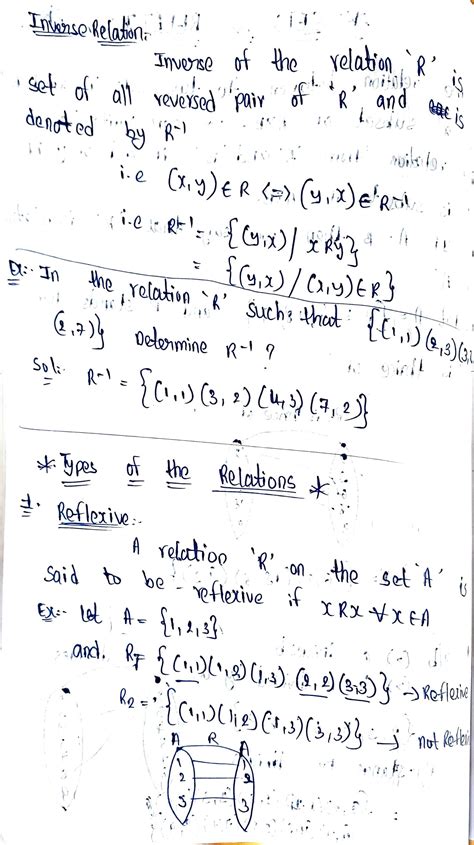 Inverse Relation:-
Inverse of the relation 'R' is
set of all reversed pair of 'R' and is
denoted by R⁻¹
i.e (x,y)∈R <=> (y,x)∈R⁻¹
i.e R⁻¹ = {(y,x)/ xRy}
= {(y,x) / (x,y)∈R}
Ex:- In the relation 'R' such that {(1,1)(2,3)(3,
(2,7)} Determine R⁻¹ ?
Sol: R⁻¹ = {(1,1)(3,2)(4,3)(7,2)}
*Types of the Relations *
1. Reflexive:-
A relation 'R' on the set 'A' is
said to be reflexive if xRx ∀ x∈A
Ex:- let A = {1,2,3}
and R₁= {(1,1)(1,2)(1,3)(2,2)(3,3)} → Reflexive
R₂ = {(1,1)(1,2)(1,3)(3,3)} → not Reflexi
A R A
1 1
2 2
3 3